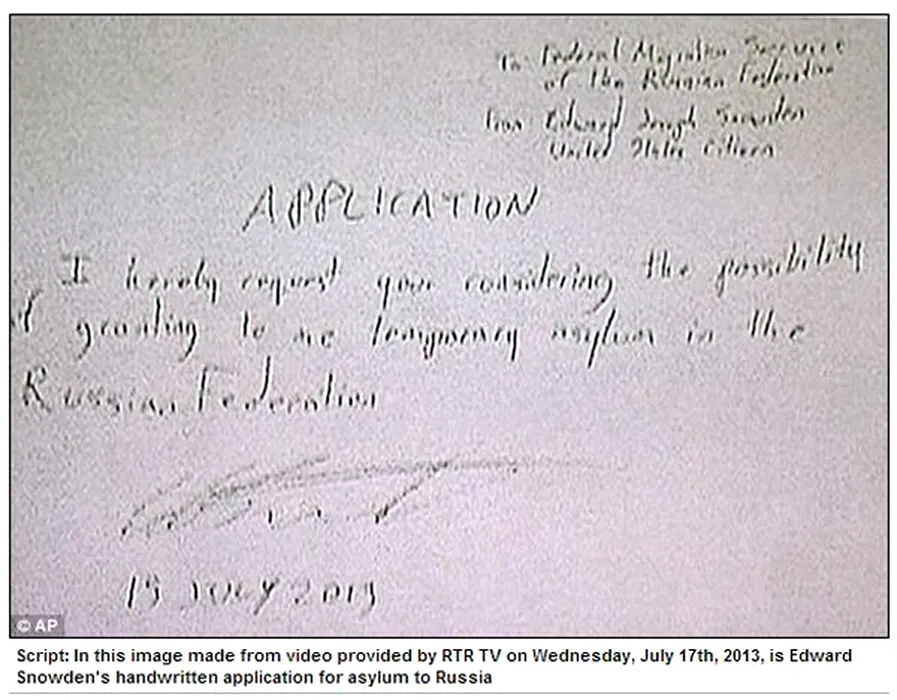 To Federal Migration Service
of the Russian Federation
From Edward Joseph Snowden
United States Citizen
APPLICATION
I hereby request your considering the possibility
of granting to me temporary asylum in the
Russian Federation
15 JULY 2013
© AP
Script: In this image made from video provided by RTR TV on Wednesday, July 17th, 2013, is Edward
Snowden's handwritten application for asylum to Russia